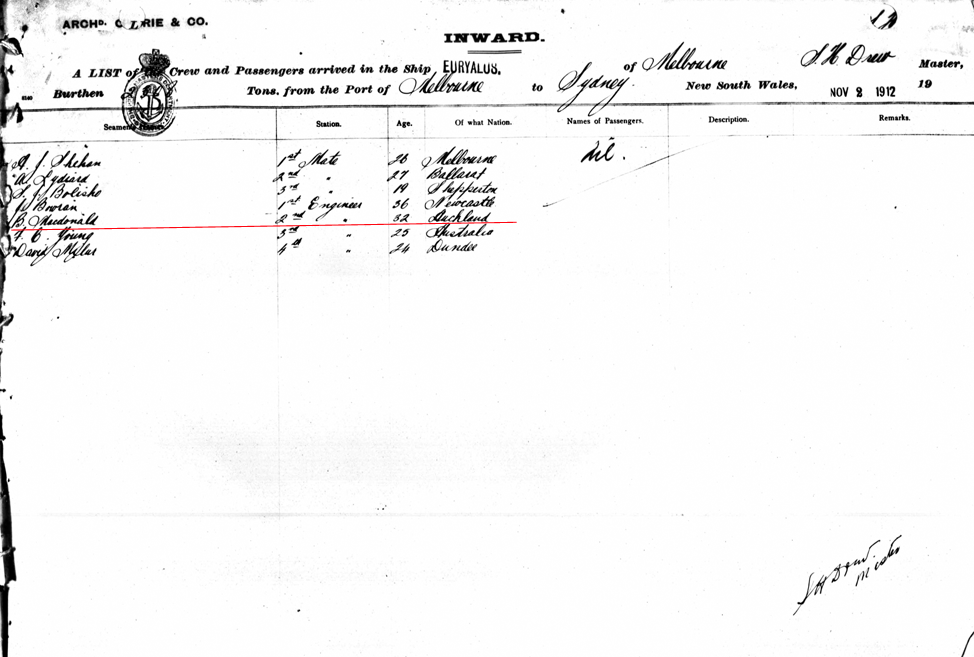 ARCHD. C RRIE & CO.
12
INWARD.
A LIST of the Crew and Passengers arrived in the Ship EURYALUS, of Melbourne S. H Drew Master,
Burthen Tons, from the Port of Melbourne to Sydney. New South Wales, NOV 2 1912 19
Seamen's Names. Station. Age. Of what Nation. Names of Passengers. Description. Remarks.
A. J. Shehan 1st Mate 28 Melbourne Nil.
A. Lydiard 2nd " 27 Ballarat
Bolisho 3rd " 19 Shepperton
J. Bowran 1st Engineer 36 Newcastle
B. Macdonald 2nd " 32 Auckland
F. C. Young 3rd " 25 Australia
David Mylar 4th " 24 Dundee
S H Drew
Master